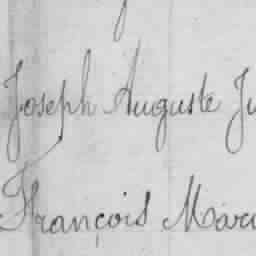 Joseph Auguste Ju
François Marc